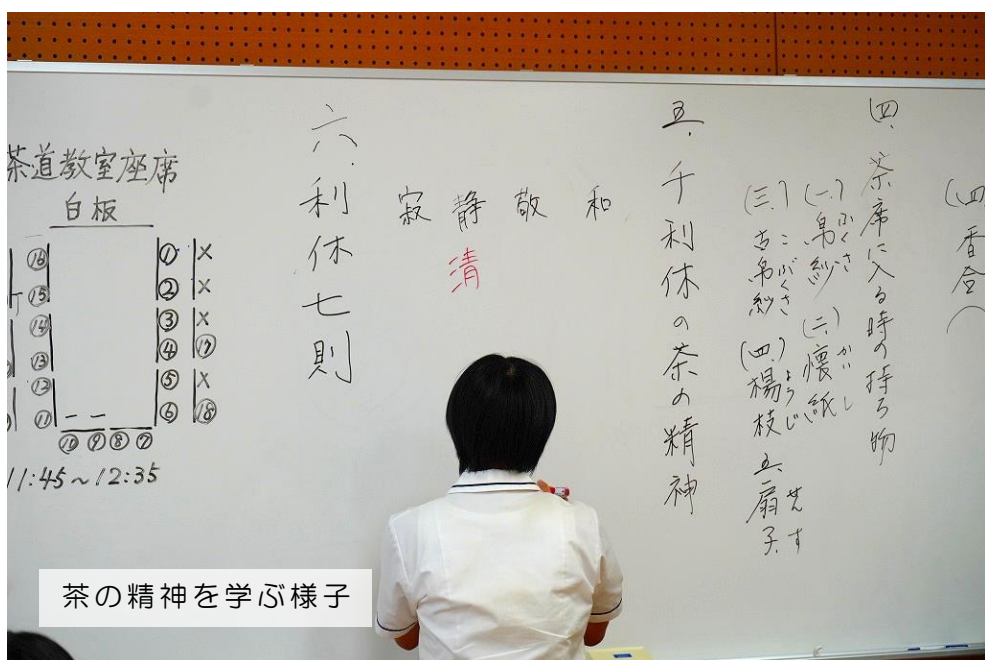 (四)香合へ
四、茶席に入る時の持ち物
(一)帛紗
ふくさ
(二)懐紙
かいし
(三)古帛紗
こぶくさ
(四)楊枝
ようじ
五、扇子
せんす
五、千利休の茶の精神
和
敬
静
清
寂
六、利休七則
茶道教室座席
白板
⑯ ① ×
⑮ ② ×
⑭ ③ ×
⑬ ④ ⑰
⑫ ⑤ ×
⑪ ⑥ ⑱
⑩ ⑨ ⑧ ⑦
11:45～12:35
茶の精神を学ぶ様子